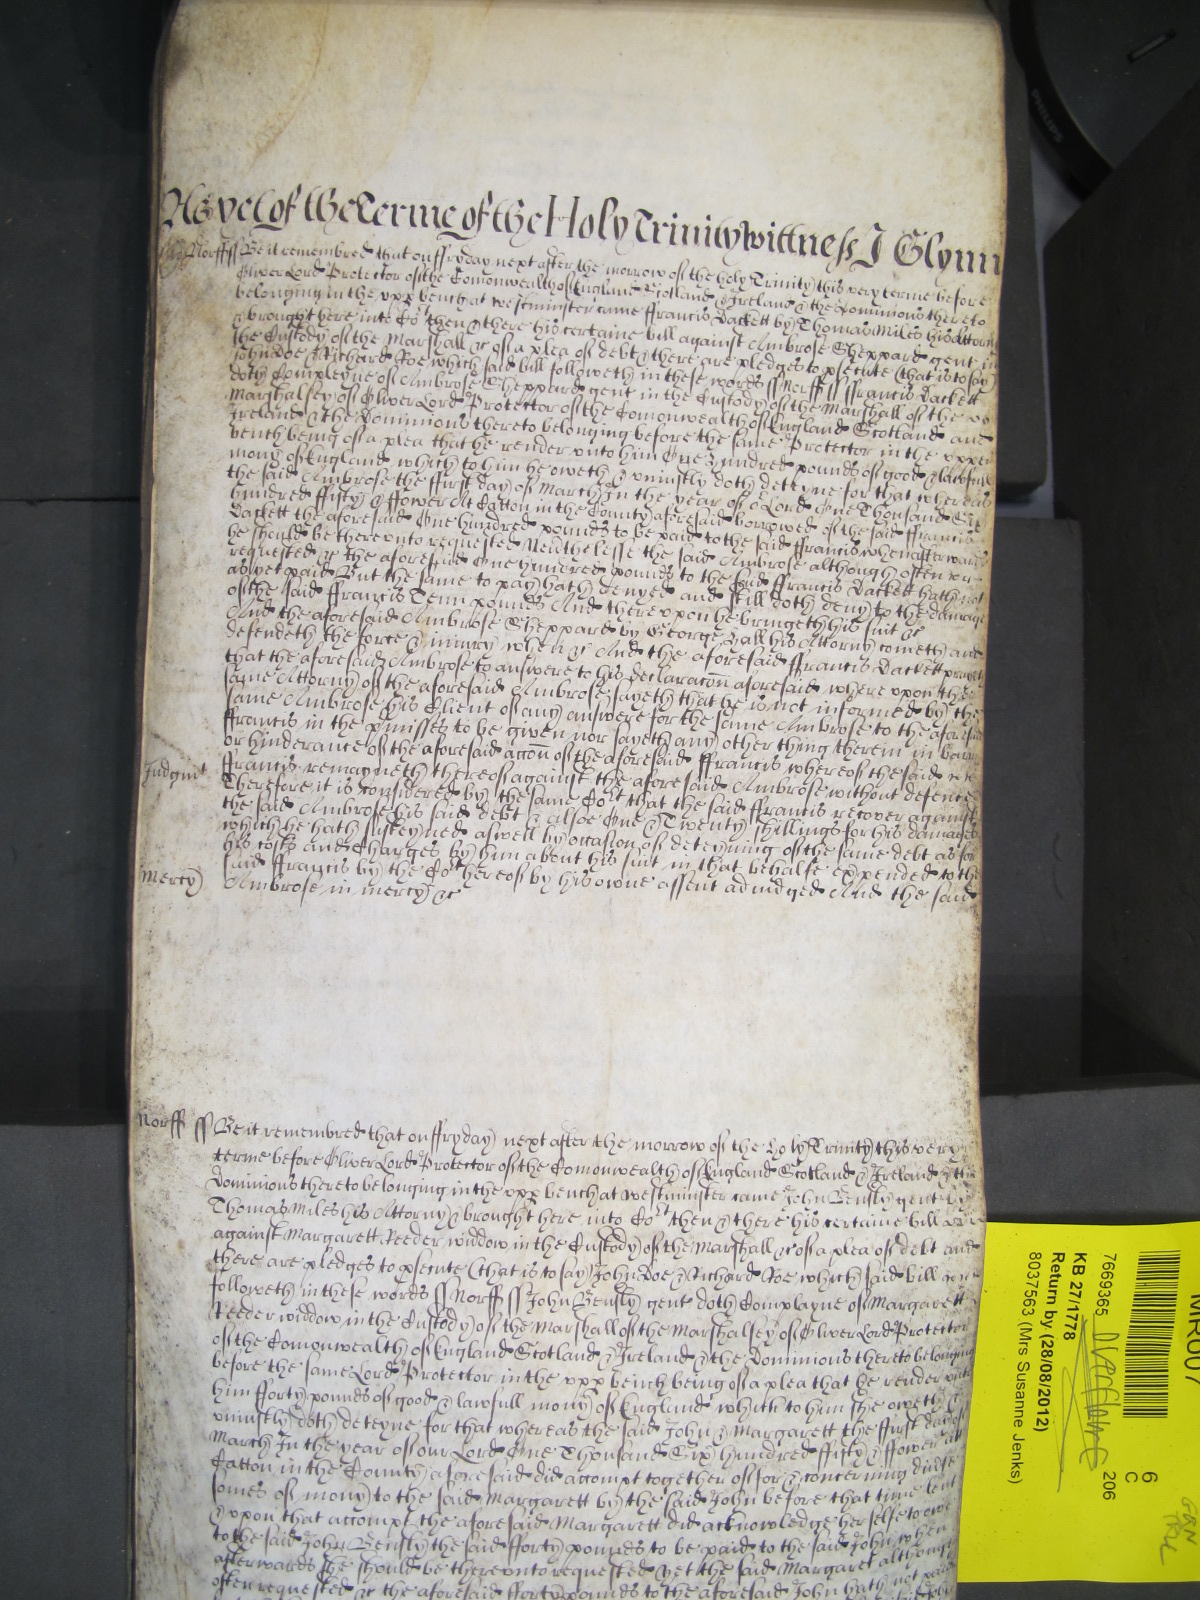 As yet of the Terme of the Holy Trinity wittness J Glynn
Norff ss Be it remembred that on ffryday next after the morrow of the holy Trinity this very terme before
Oliver Lord Protector of the Comonwealth of England Scotland & Ireland & the Dominions thereto
belonging in the upp bench at westminster came ffrancis Dackett by Thomas Miles his Attorn
& brought here into Cort then & there his certaine bill against Ambrose Sheppard gent in
the Custody of the Marshall &c of a plea of debt & there are pledges to psecute (that is to say)
John Doe & Richard Roe which said bill followeth in these words ss Norff ss ffrancis Dackett
doth Compleyne of Ambrose Sheppard gent in the Custody of the Marshall of the
Marshalsey of Oliver Lord Protector of the Comonwealth of England Scotland and
Ireland & the Dominions thereto belonging before the same Protector in the upper
bench being of a plea that he render unto him One Hundred pounds of good & lawfull
mony of England which to him he oweth & uniustly doth deteyne for that whereas
the said Ambrose the ffirst day of March In the year of or Lord One Thousand Six
hundred ffifty & ffower At Catton in the County aforesaid borrowed of the said ffrancis
Dackett the aforesaid One hundred pounds to be paid to the said ffrancis when afterwards
he should be thereunto requested Neuthelesse the said Ambrose although often
requested &c the aforesaid One hundred pounds to the said ffrancis Dackett hath not
as yet paid But the same to pay hath denyed and still doth deny to the damage
of the said ffrancis Tenn pounds And thereupon he bringeth his suit &c
And the aforesaid Ambrose Sheppard by George Hall his Attorny cometh and
defendeth the force & iniury when &c And the aforesaid ffrancis Dackett prayeth
that the aforesaid Ambrose to answere to his declaracon aforesaid where upon the
same Attorny of the aforesaid Ambrose sayeth that he is not informed by the
same Ambrose his Client of any answere for the same Ambrose to the aforesaid
ffrancis in the pmisses to be given nor sayeth any other thing therein in barr
or hinderance of the aforesaid accon of the aforesaid ffrancis whereof the said
Judgmt ffrancis remayneth thereof against the aforesaid Ambrose without defence
Therefore it is considered by the same Cort that the said ffrancis recover against
the said Ambrose his said debt & alsoe One & Twenty shillings for his damages
which he hath susteyned aswell by occasion of deteyning of the same debt as for
his costs and Charges by him about his suit in that behalfe expended to the
said ffrancis by the Cort hereof by his owne assent adiudged And the said
Mercy Ambrose in mercy &c
Norff ss Be it remembred that on ffryday next after the morrow of the Holy Trinity this very
terme before Oliver Lord Protector of the Comonwealth of England Scotland & Ireland & the
Dominions thereto belonging in the upp bench at westminster came John Bensly gent by
Thomas Miles his Attorny & brought here into Cort then & there his certaine bill
against Margarett Reeder widdow in the Custody of the Marshall &c of a plea of debt and
there are pledges to psecute (that is to say) John Doe & Richard Roe which said bill
followeth in these words ss Norff ss John Bensly gent doth Complayne of Margarett
Reeder widdow in the Custody of the Marshall of the Marshalsey of Oliver Lord Protector
of the Comonwealth of England Scotland & Ireland & the Dominions thereto belonging
before the same Lord Protector in the upp bench being of a plea that he render unto
him fforty pounds of good & lawfull mony of England which to him she oweth &
uniustly doth deteyne for that whereas the said John & Margarett the ffirst day of
March In the year of our Lord One Thousand Six hundred ffifty & ffower At
Catton in the County aforesaid did accompt together of for & concerning
somes of mony to the said Margarett by the said John before that time lent
& upon that accompt the aforesaid Margarett did acknowledge her selfe to owe
to the said John Bensly the said fforty pounds to be paid to the said John when
afterwards she should be thereunto requested yet the said Margaret although
often requested &c the aforesaid fforty pounds to the aforesaid John hath not paid
PHILIPS
7669365
206
6
C
KB 27/1778
Return by (28/08/2012)
8037563 (Mrs Susanne Jenks)